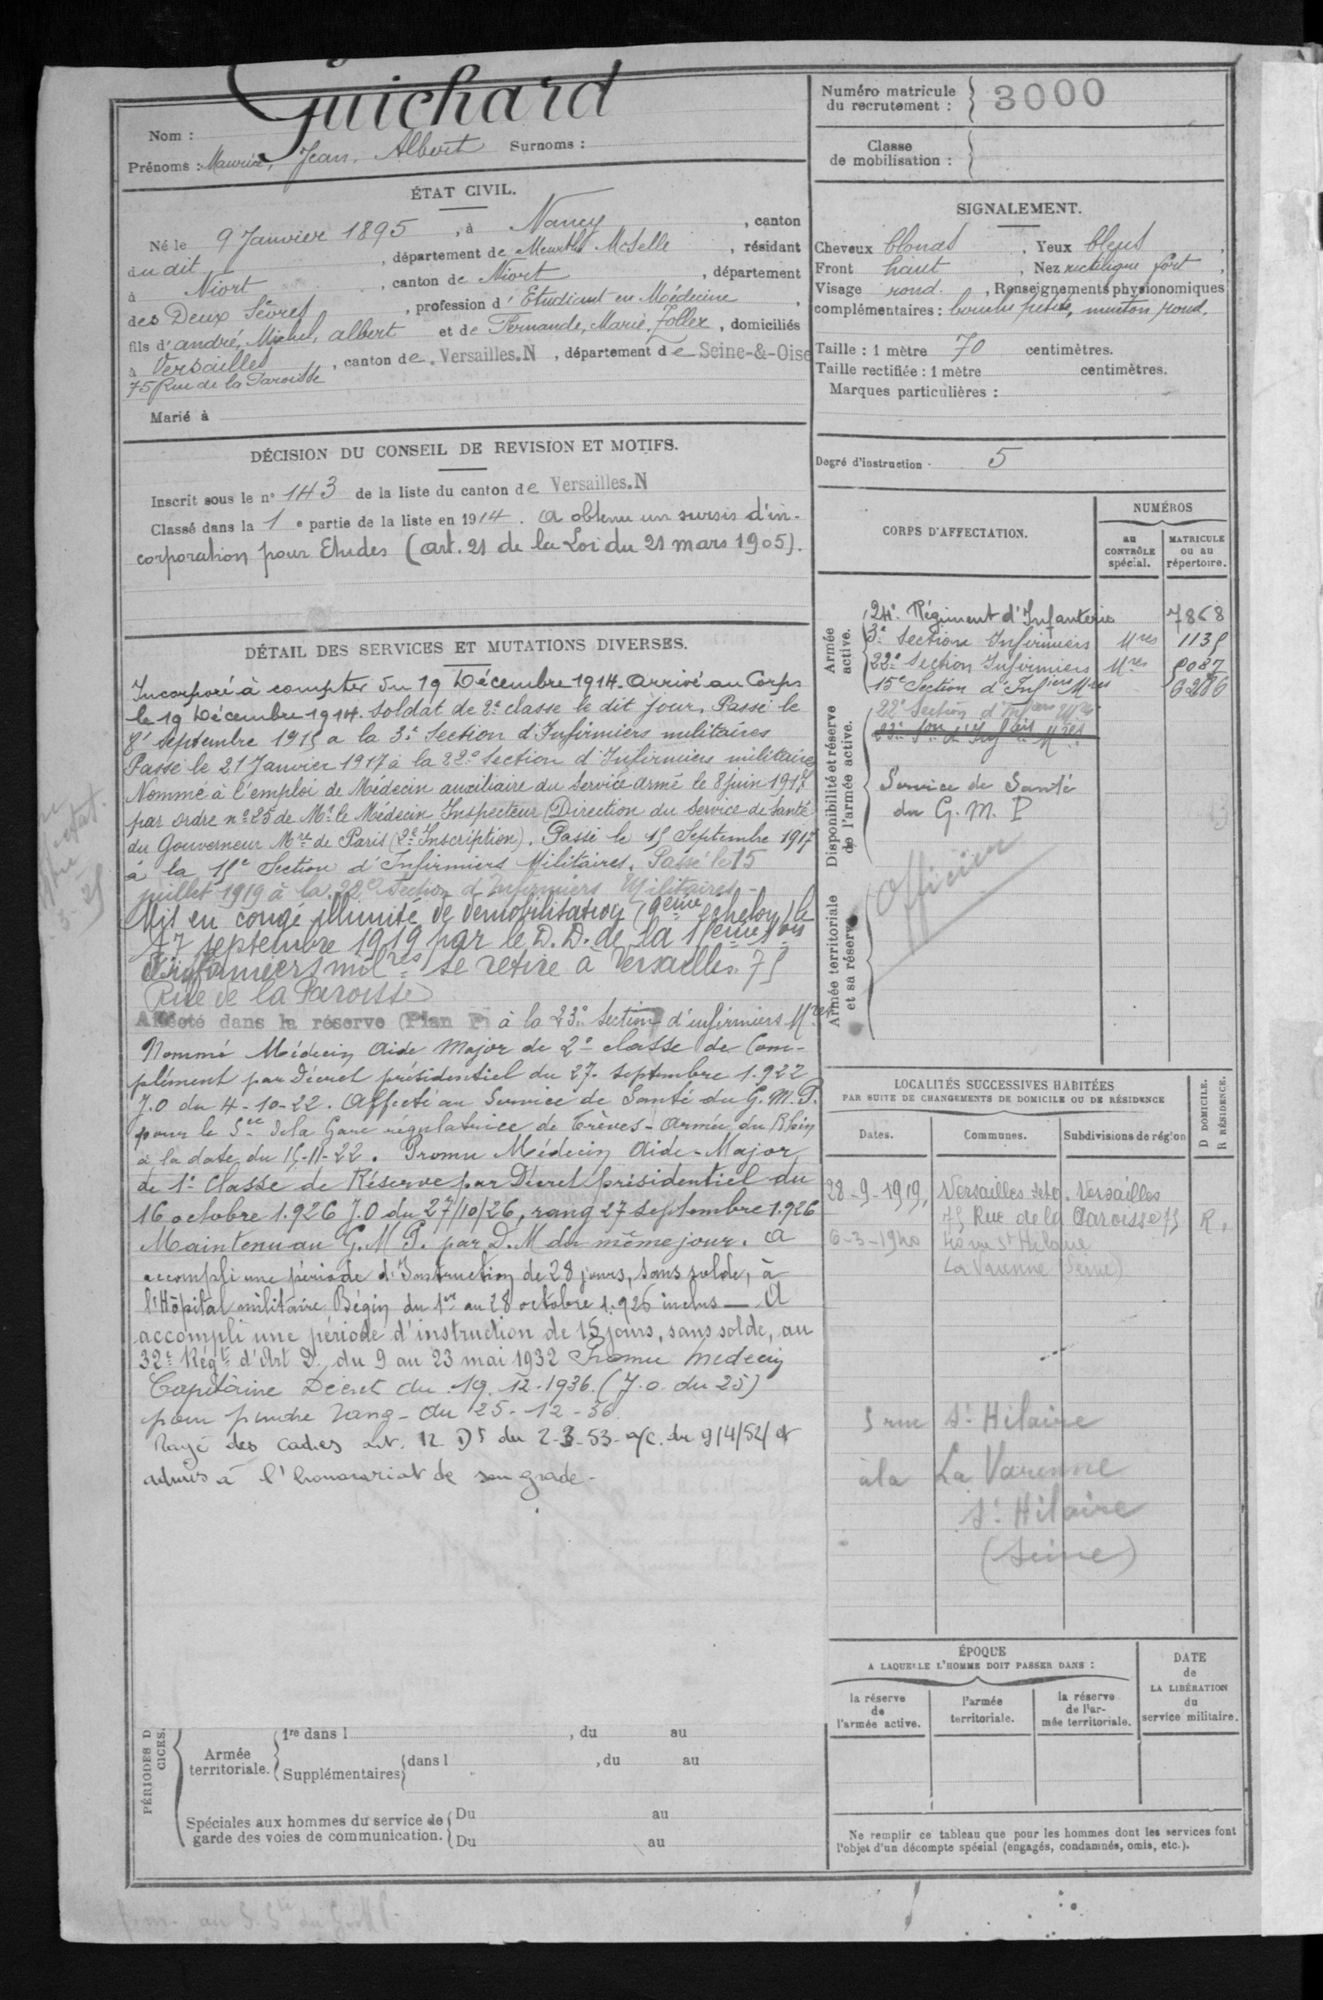 Guichard
Nom :
Prénoms : Maurice, Jean, Albert Surnoms :
ÉTAT CIVIL.
Né le 9 Janvier 1895, à Nancy, canton
du dit, département de Meurthe Moselle, résidant
à Niort, canton de Niort, département
des Deux Sèvres, profession d'Etudiant en Médecine,
fils d'andré, Michel, albert et de Fernande, Marie, Zoller, domiciliés
à Versailles, canton de Versailles.N, département de Seine-&-Oise
75 Rue de la Paroisse
Marié à
DÉCISION DU CONSEIL DE REVISION ET MOTIFS.
Inscrit sous le n° 143 de la liste du canton de Versailles.N
Classé dans la 1e partie de la liste en 1914. A obtenu un sursis d'in-
corporation pour Etudes (art. 21 de la Loi du 21 mars 1905).
DÉTAIL DES SERVICES ET MUTATIONS DIVERSES.
Incorporé à compter du 19 Décembre 1914. arrivé au Corps
le 19 Décembre 1914. Soldat de 2e classe le dit jour. Passé le
septembre 1915 a la 3e Section d'Infirmiers militaires
Passé le 21 Janvier 1917 à la 22e Section d'Infirmiers militaires
Nommé à l'emploi de Médecin auxiliaire du Service armé le 8 juin 1917
par ordre n° 25 de Mr le Médecin Inspecteur (Direction du Service de Santé
du Gouverneur Mre de Paris (2e Inscription). Passé le 15 Septembre 1917
à la 15e Section d'Infirmiers Militaires. Passé le 15
juillet 1919 à la 22e Section d'Infirmiers Militaires -
Mis en congé illimité de démobilisation (9ème échelon) le
17 septembre 1919 par le D. D. de la 15ème
d'infirmiers milres se retire à Versailles 75
Rue de la Paroisse
Affecté dans la réserve (Plan P) à la 23e Section d'infirmiers Mres
Nommé Médecin Aide Major de 2e classe de Com-
plément par Décret présidentiel du 27 septembre 1.922
J.O du 4-10-22. Affecté au Service de Santé du G.M.P.
pour le Sce de la Gare régulatrice de Trèves - Armée du Rhin
à la date du 15-11-22. Promu Médecin Aide-Major
de 1e Classe de Réserve par Décret présidentiel du
16 octobre 1.926 J.O du 27/10/26, rang 27 septembre 1.926
Maintenu au G.M P. par D.M du même jour. A
accompli une période d'Instruction de 28 jours, sans solde, à
l'Hôpital militaire Bégin du 1er au 28 octobre 1.926 inclus — A
accompli une période d'instruction de 15 jours, sans solde, au
32e Régt d'Art D. du 9 au 23 mai 1932 Promu Médecin
Capitaine Décret du 19.12.1936. (J.o. du 25)
pour prendre rang - du 25-12-36.
Rayé des cadres art. 12 Dt du 2-3-53 a/c. du 9/4/52/ et
admis à l'honorariat de son grade -
Armée territoriale.
1re dans l , du au
Supplémentaires dans l , du au
Spéciales aux hommes du service de garde des voies de communication.
Du au
Du au
Numéro matricule du recrutement : 3000
Classe de mobilisation :
SIGNALEMENT.
Cheveux blonds, Yeux bleus,
Front haut, Nez rectiligne fort,
Visage rond., Renseignements physionomiques
complémentaires : bouche petite, menton rond.
Taille : 1 mètre 70 centimètres.
Taille rectifiée : 1 mètre centimètres.
Marques particulières :
Degré d'instruction 5
CORPS D'AFFECTATION.
NUMÉROS
au CONTRÔLE spécial.
MATRICULE ou au répertoire.
Armée active.
24e Régiment d'Infanterie 7868
3e Section Infirmiers Mres 1135
22e Section Infirmiers Mres 5087
15e Section d'Infiers Mres 6286
Disponibilité et réserve de l'armée active.
22e Section d'Infiers Mres
23e Son d'Infirs Mres
Service de Santé
du G. M. P
Armée territoriale et sa réserve
Officier
LOCALITÉS SUCCESSIVES HABITÉES
PAR SUITE DE CHANGEMENTS DE DOMICILE OU DE RÉSIDENCE
D DOMICILE.
R RÉSIDENCE.
Dates. Communes. Subdivisions de région
28-9-1919, Versailles Versailles
75 Rue de la Paroisse 75 R.
6-3-1940 rue St Hilaire
La Varenne (Seine)
5 rue St Hilaire
à la La Varenne
St Hilaire
(Seine)
ÉPOQUE
A LAQUELLE L'HOMME DOIT PASSER DANS :
la réserve de l'armée active.
l'armée territoriale.
la réserve de l'armée territoriale.
DATE de LA LIBÉRATION du service militaire.
Ne remplir ce tableau que pour les hommes dont les services font
l'objet d'un décompte spécial (engagés, condamnés, omis, etc.).